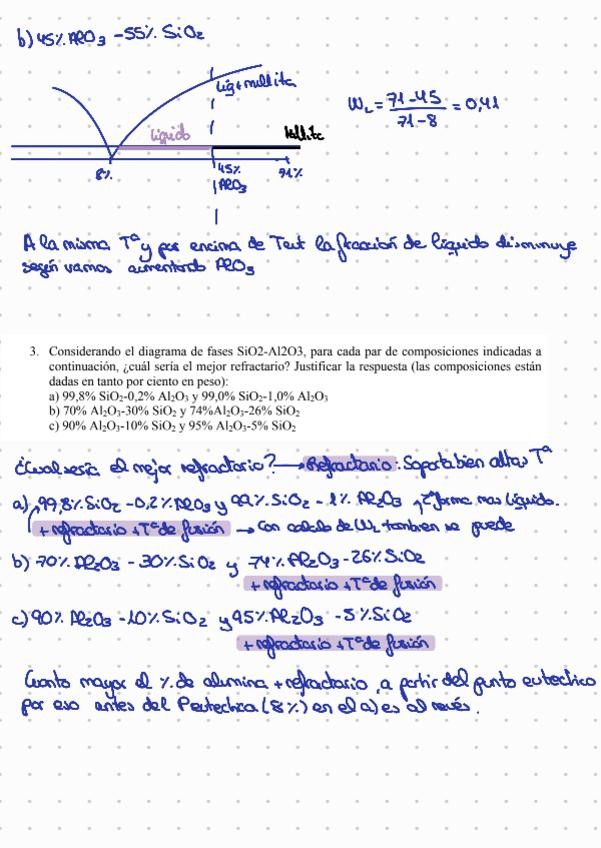 b) 45% Al2O3 - 55% SiO2
Liq+mullita
líquido
Mullita
8%
45%
Al2O3
71%
WL = 71-45 / 71-8 = 0,41
A la misma Tª y por encima de Teut la fracción de líquido disminuye
según vamos aumentando Al2O3
3. Considerando el diagrama de fases SiO2-Al2O3, para cada par de composiciones indicadas a
continuación, ¿cuál sería el mejor refractario? Justificar la respuesta (las composiciones están
dadas en tanto por ciento en peso):
a) 99,8% SiO₂-0,2% Al₂O₃ y 99,0% SiO₂-1,0% Al₂O₃
b) 70% Al₂O₃-30% SiO₂ y 74%Al₂O₃-26% SiO₂
c) 90% Al₂O₃-10% SiO₂ y 95% Al₂O₃-5% SiO₂
¿Cual sería el mejor refractario? → Refractario: Soporta bien altas Tª
a) 99,8% SiO2 - 0,2% Al2O3 y 99% SiO2 - 1% Al2O3 forma mas líquido.
+ refractario + Tª de fusión → Con calculo de WL tambien se puede
b) 70% Al2O3 - 30% SiO2 y 74% Al2O3 - 26% SiO2
+ refractario + Tª de fusión
c) 90% Al2O3 - 10% SiO2 y 95% Al2O3 - 5% SiO2
+ refractario + Tª de fusión
Cuanto mayor el % de alumina + refractario, a partir del punto eutectico
por eso antes del P eutectico (8%) en el a) es al revés.